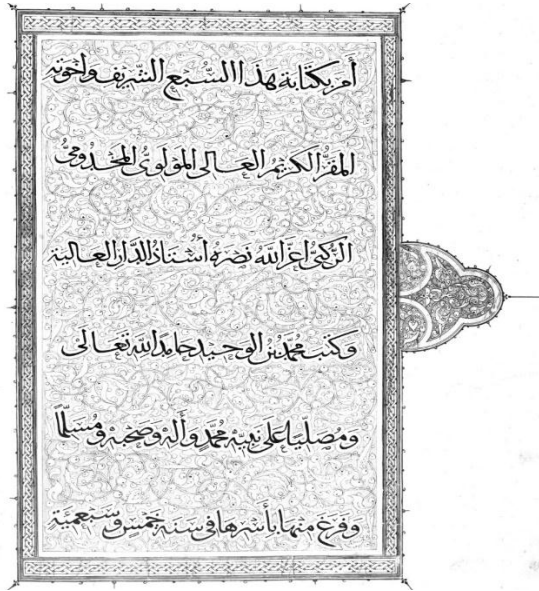 أمر بكتابة هذا السبع الشريف وإخوته
المقر الكريم العالى المولوى المخدومى
الركنى اعز الله نصره أستاذ الدار العالية
وكتب محمد بن الوحيد حامدا لله تعالى
ومصليا على نبيه محمد وأله وصحبه ومسلما
وفرغ منها بأسرها فى سنة خمس وسبعمية